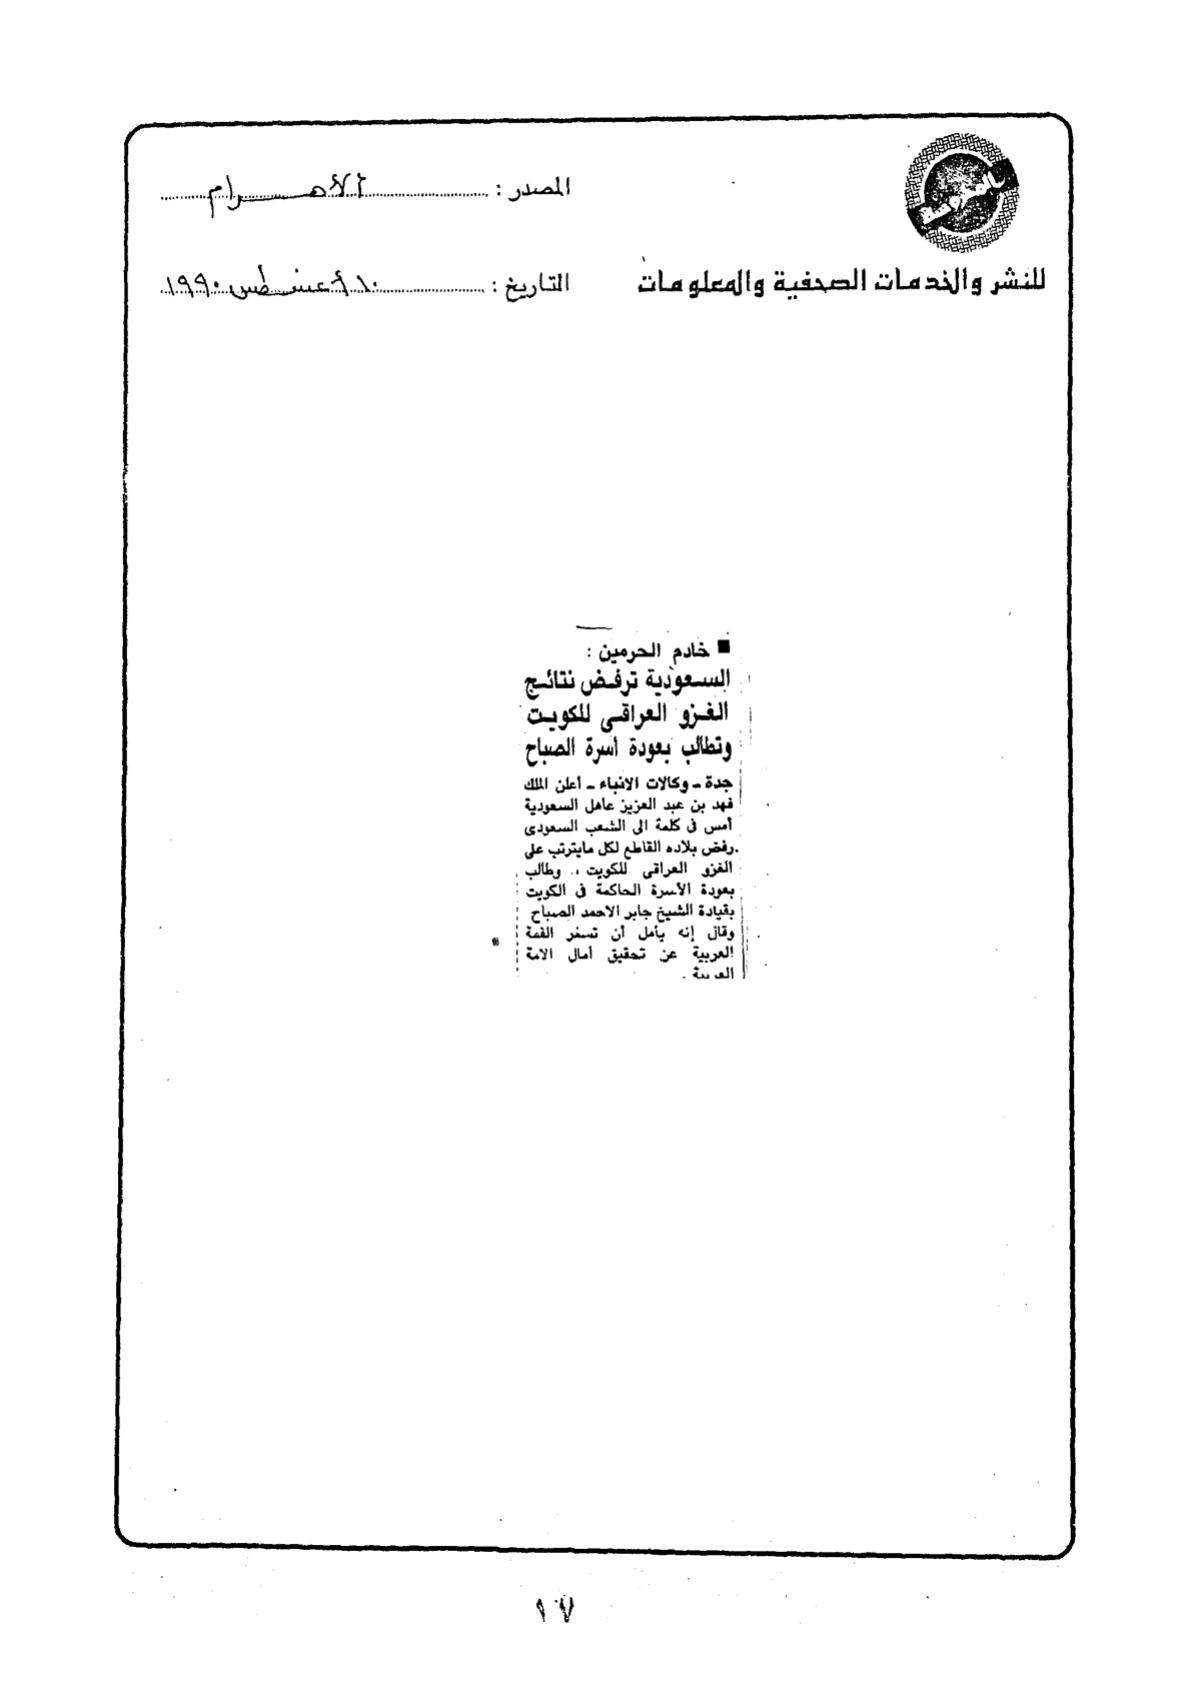 المصدر : الأهرام
للنشر والخدمات الصحفية والمعلومات
التاريخ : ١٠ أغسطس ١٩٩٠
■ خادم الحرمين :
السعودية ترفض نتائج
الغزو العراقى للكويت
وتطالب بعودة أسرة الصباح
جدة - وكالات الانباء - أعلن الملك
فهد بن عبد العزيز عاهل السعودية
أمس فى كلمة الى الشعب السعودى
رفض بلاده القاطع لكل مايترتب على
الغزو العراقى للكويت ، وطالب
بعودة الأسرة الحاكمة فى الكويت
بقيادة الشيخ جابر الاحمد الصباح
وقال إنه يأمل أن تسفر القمة
العربية عن تحقيق آمال الامة
العربية .